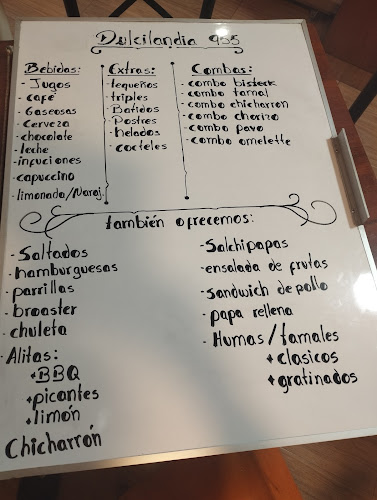 Dulcilandia 955
Bebidas:
- Jugos
- café
- Gaseosas
- Cerveza
- chocolate
- leche
- infuciones
- capuccino
- limonada/Naraj.
Extras:
- tequeños
- triples
- Batidos
- Postres
- helados
- cocteles
Combos:
- combo bisteck
- combo tamal
- combo chicharron
- combo chorizo
- combo pavo
- combo omelette
también ofrecemos:
- Saltados
- hamburguesas
- parrillas
- broaster
- chuleta
- Alitas:
+ BBQ
+ picantes
+ limón
Chicharrón
- Salchipapas
- ensalada de frutas
- sandwich de pollo
- papa rellena
- Humas/tamales
+ clasicos
+ gratinados